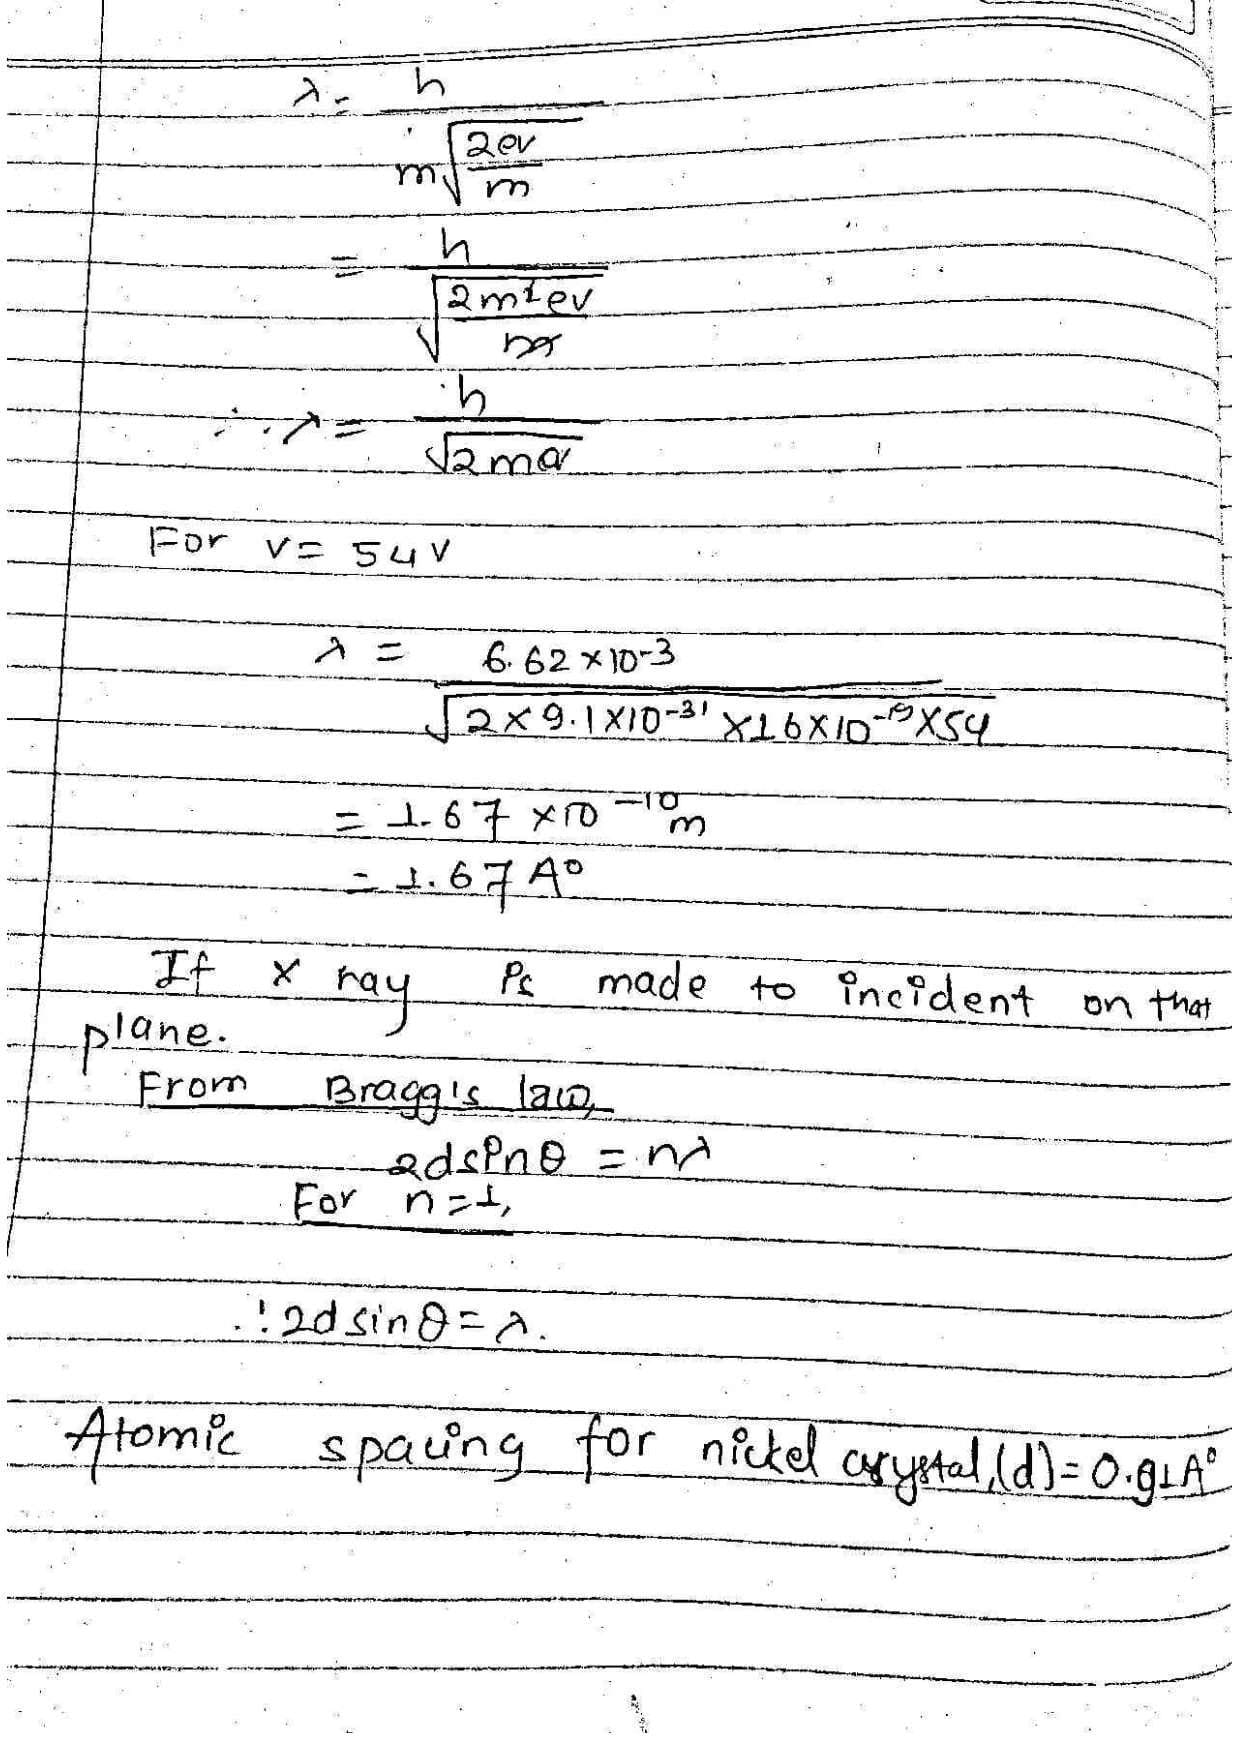 λ = h
m√2ev/m
= h
√2m²ev/m
∴ λ = h
√2mev
For v = 54 v
λ = 6.62 × 10-3
√2 × 9.1 × 10-31 × 1.6 × 10-19 × 54
= 1.67 × 10 -10 m
= 1.67 A°
If x ray is made to incident on that
plane.
From Bragg's law,
2dsinθ = nλ
For n=1,
∴ 2d sinθ = λ.
Atomic spacing for nickel crystal,(d) = 0.91A°